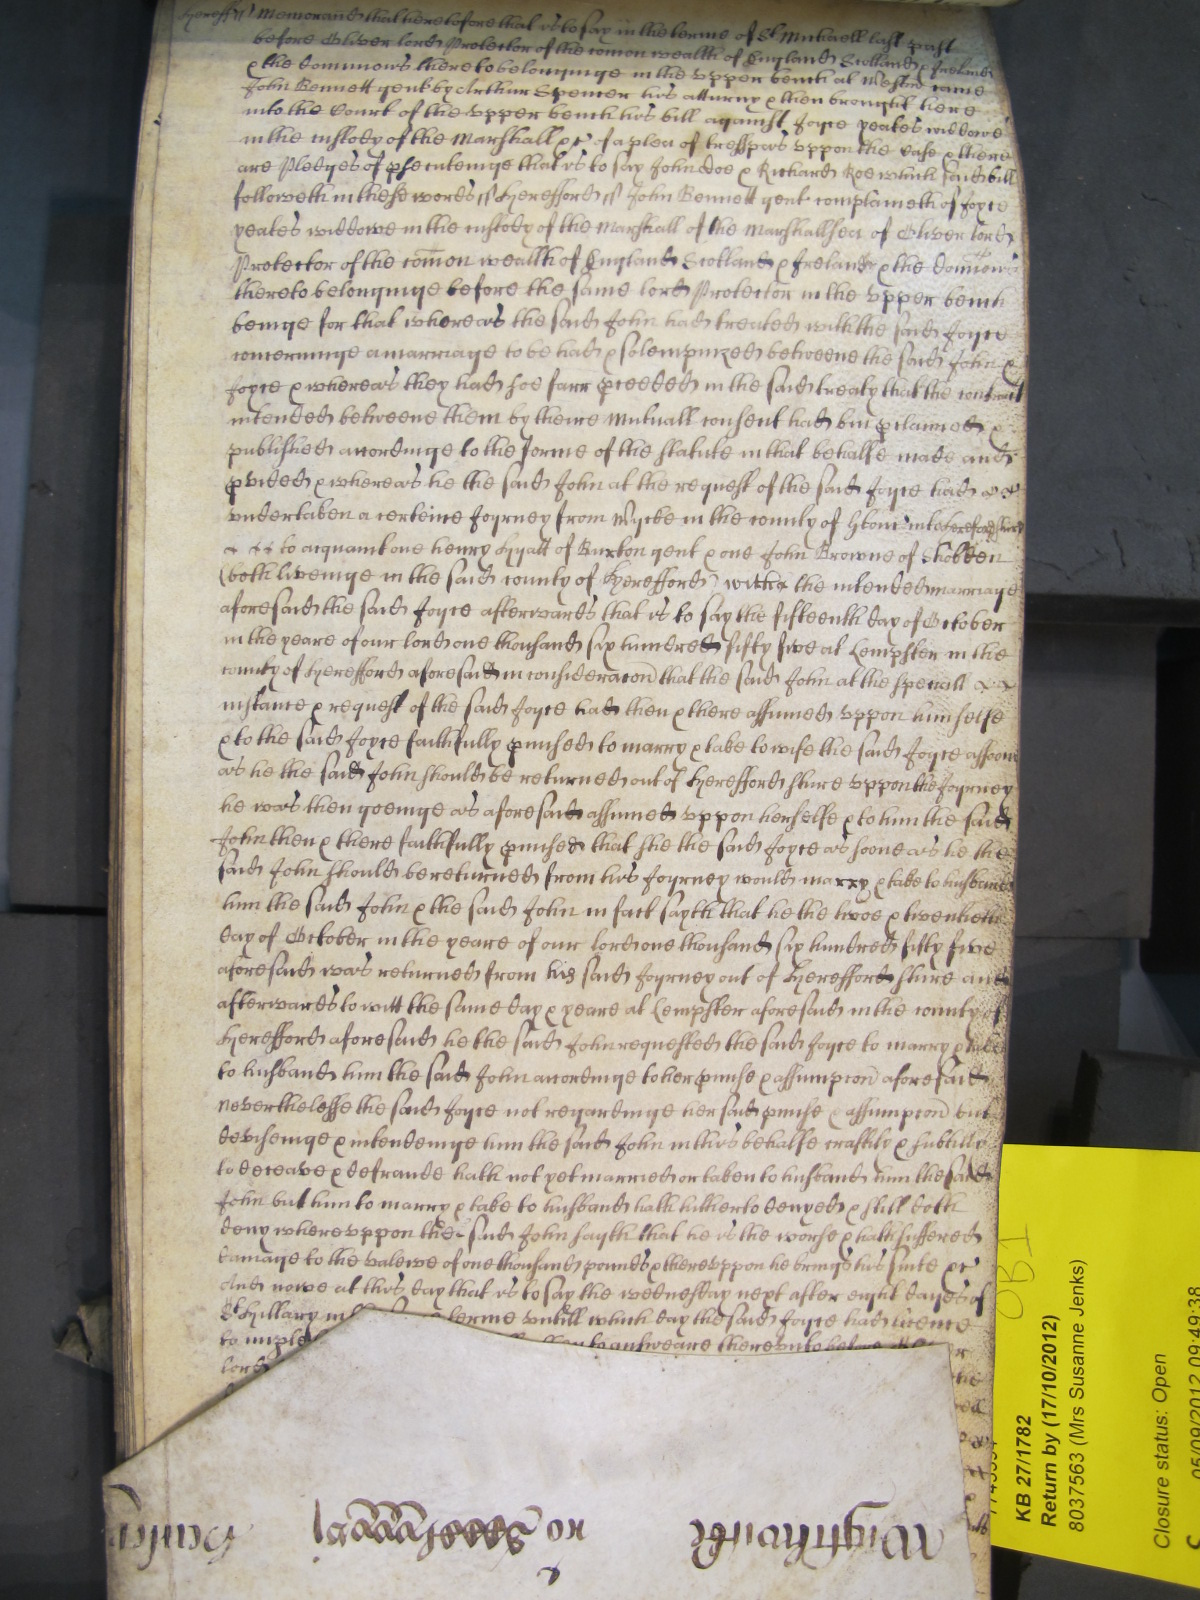 Hereff ss Memorand that heretofore that is to say in the terme of St Michaell last past
before Oliver lord Protector of the comon wealth of England Scotland & Ireland
& the dominions thereto belonginge in the upper bench at Westm came
John Bennett gent by Arthur Spencer his atturny & then brought here
into the Court of the upper bench his bill against Joyce yeates widdowe
in the custody of the Marshall &c of a plea of trespas uppon the case & there
are Pledges of psecutinge that is to say John doe & Richard Roe which said bill
followeth in these words ss Herefford ss John Bennett gent complaineth of Joyce
yeates widdowe in the custody of the Marshall of the Marshallsea of Oliver lord
Protector of the comon wealth of England Scotland & Ireland & the dominions
thereto belonginge before the same lord Protector in the upper bench
beinge for that whereas the said John had treated with the said Joyce
concerninge a marriage to be had & solempnized betweene the said John &
Joyce & whereas they had soe farr pceeded in the said treaty that the contract
intended betweene them by theire Mutuall consent had bin pclaimed &
published accordinge to the forme of the statute in that behalfe made and
pvided & whereas he the said John at the request of the said Joyce had
undertaken a certeine Joyrney from Wyche in the county of into Herefordshire
to acquaint one henry Hyatt of Burton gent & one John Browne of Shobden
(both liveinge in the said county of Herefford) with the intended marriage
aforesaid the said Joyce afterwards that is to say the fifteenth day of October
in the yeare of our lord one thousand six hundred fifty five at Lempster in the
county of Herefford aforesaid in consideracon that the said John at the speciall
instance & request of the said Joyce had then & there assumed uppon himselfe
& to the said Joyce faithfully pmised to marry & take to wife the said Joyce assoone
as he the said John should be returned out of Herefford shire uppon the Joyrney
he was then goeinge as aforesaid assumed uppon herselfe & to him the said
John then & there faithfully pmised that she the said Joyce as soone as he the
said John should be returned from his Joyrney would marry & take to husband
him the said John & the said John in fact sayth that he the twoe & twentieth
day of October in the yeare of our lord one thousand six hundred fifty five
aforesaid was returned from his said Joyrney out of Herefford shire and
afterwards to witt the same day & yeare at Lempster aforesaid in the county of
Herefford aforesaid he the said John requested the said Joyce to marry & take
to husband him the said John accordinge to her pmise & assumpcon aforesaid
neverthelesse the said Joyce not regardinge her said pmise & assumpcon but
deviseinge & intendeinge him the said John in this behalfe craftily & subtilly
to deceave & defraude hath not yet married or taken to husband him the said
John but him to marry & take to husband hath hitherto denyed & still doth
deny whereuppon the said John sayth that he is the worse & hath suffered
damage to the valewe of one thousand pounds & thereuppon he brings his suite &c
And nowe at this day that is to say the wednesday next after eight dayes of
St Hillary terme untill which day the said Joyce had licence
to imple to answeare thereunto before
lord
Wightwicke
KB 27/1782
Return by (17/10/2012)
8037563 (Mrs Susanne Jenks)
Closure status: Open
05/09/2012 09:49:38